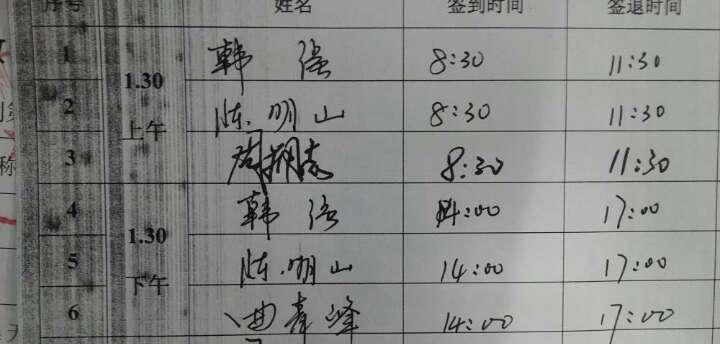 序号 姓名 签到时间 签退时间
1 韩强 8:30 11:30
1.30
2 陈明山 8:30 11:30
上午
3 8:30 11:30
4 韩强 14:00 17:00
1.30
5 陈明山 14:00 17:00
下午
6 曲春峰 14:00 17:00